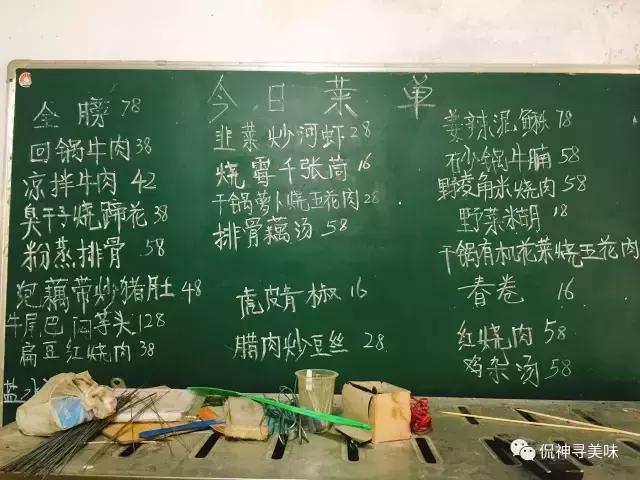 今日菜单
全膀 78
回锅牛肉 38
凉拌牛肉 42
臭干子烧蹄花 38
粉蒸排骨 58
泡藕带炒猪肚 48
牛尾巴闷笨头 128
扁豆红烧肉 38
盐水
韭菜炒河虾 28
烧霉千张筒 16
干锅萝卜烧五花肉 28
排骨藕汤 58
虎皮青椒 16
腊肉炒豆丝 28
姜辣泥鳅 78
砂锅牛腩 58
野菱角米烧肉 58
野菜米胡 18
干锅有机花菜烧五花肉
春卷 16
红烧肉 58
鸡杂汤 58
侃神寻美味